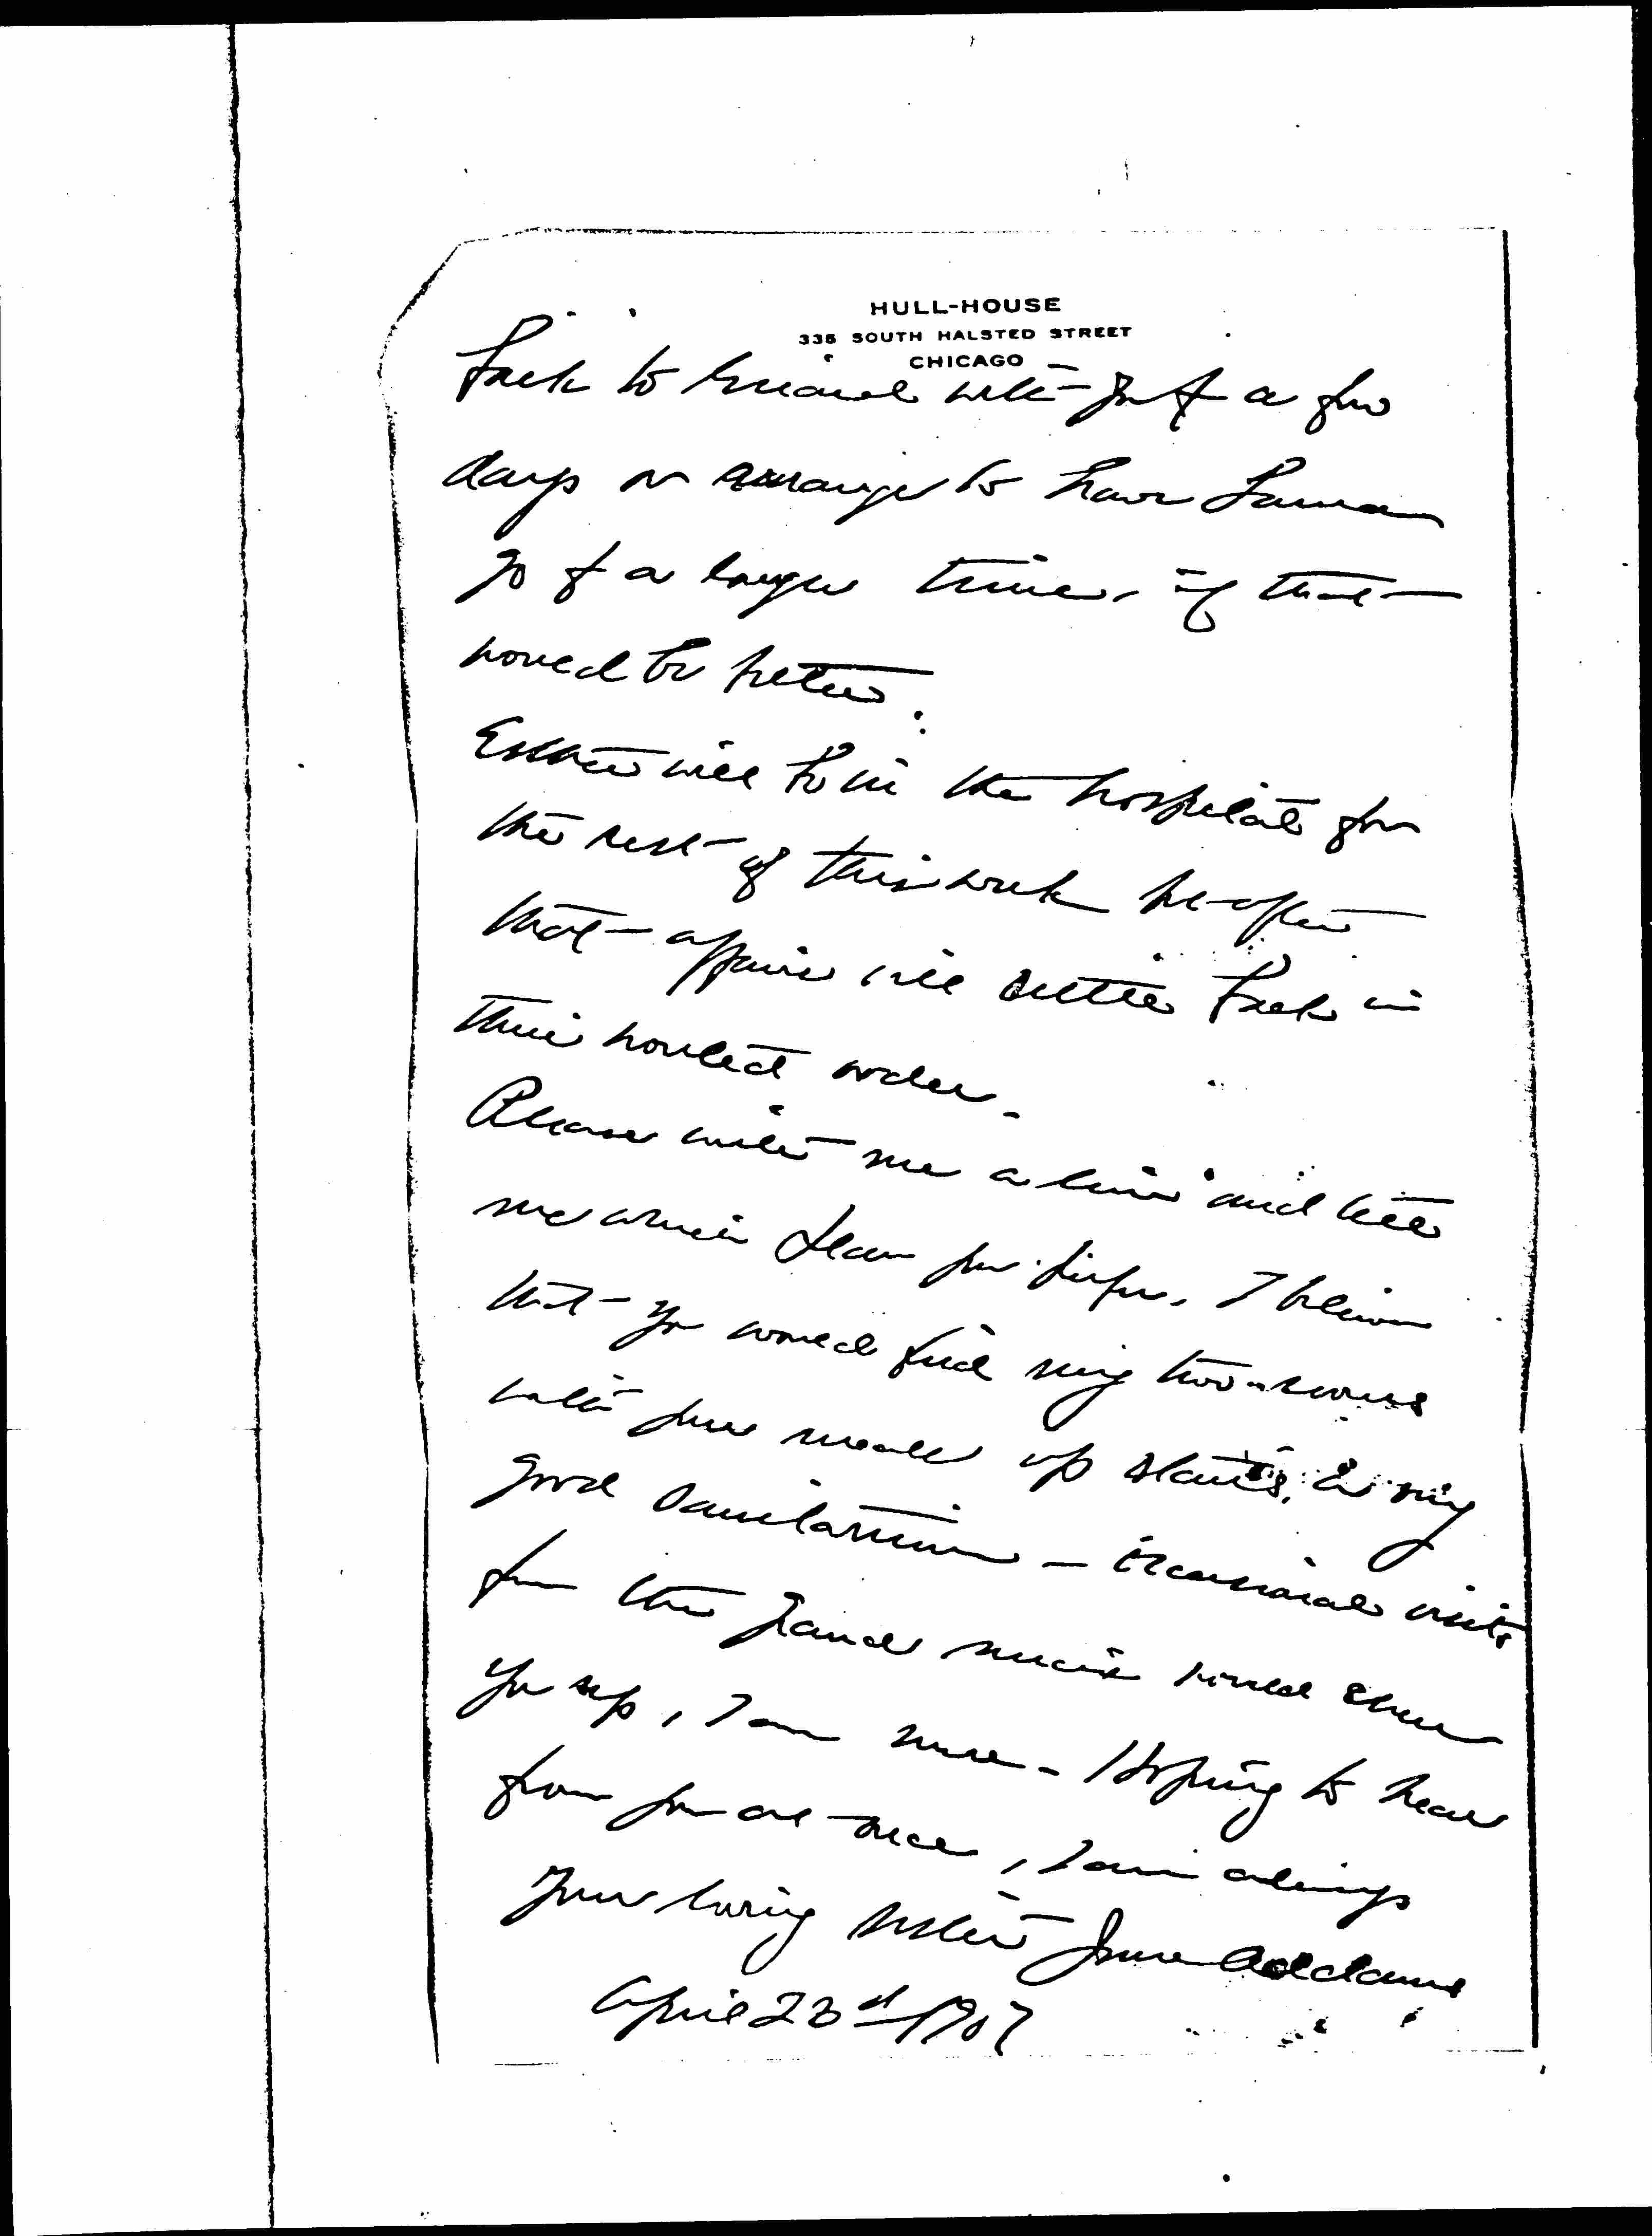 HULL-HOUSE
335 SOUTH HALSTED STREET
CHICAGO
back to Girard with just a few
days or arrange to have Laura
go for a longer time, if that
would be better.
Esther will be in the hospital for
the rest of this week but after
that affairs will settle back in
their wonted order.
Please write me a line and tell
me when I can hope. I believe
that you would find my two rooms
with your meals up stairs, a very
good Sanitarium — occasional visits
from the grand would cheer
you up, I am sure - Hoping to hear
from you at once, I am always
Your loving sister Jane Addams
April 23d 1907